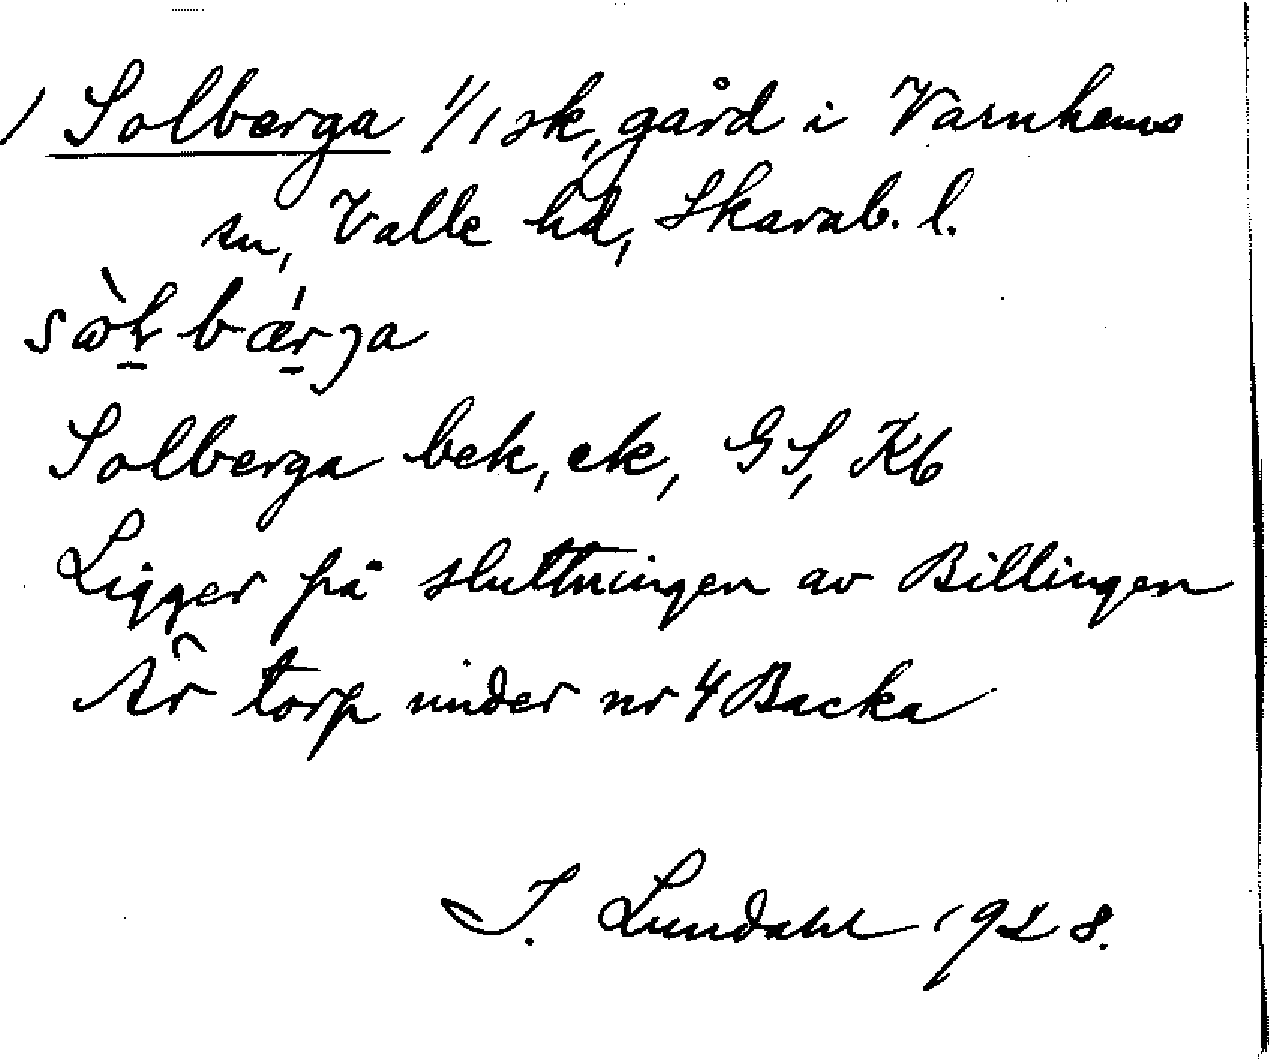 / Solberga 1/1 sk, gård i Varnhems
sn, Valle hd, Skarab. l.
sɷ̀ɫ bǽrja
Solberga bek, ek, GS, Kb
Ligger på sluttningen av Billingen
Är torp under nr 4 Backa
I. Lundahl 1928.